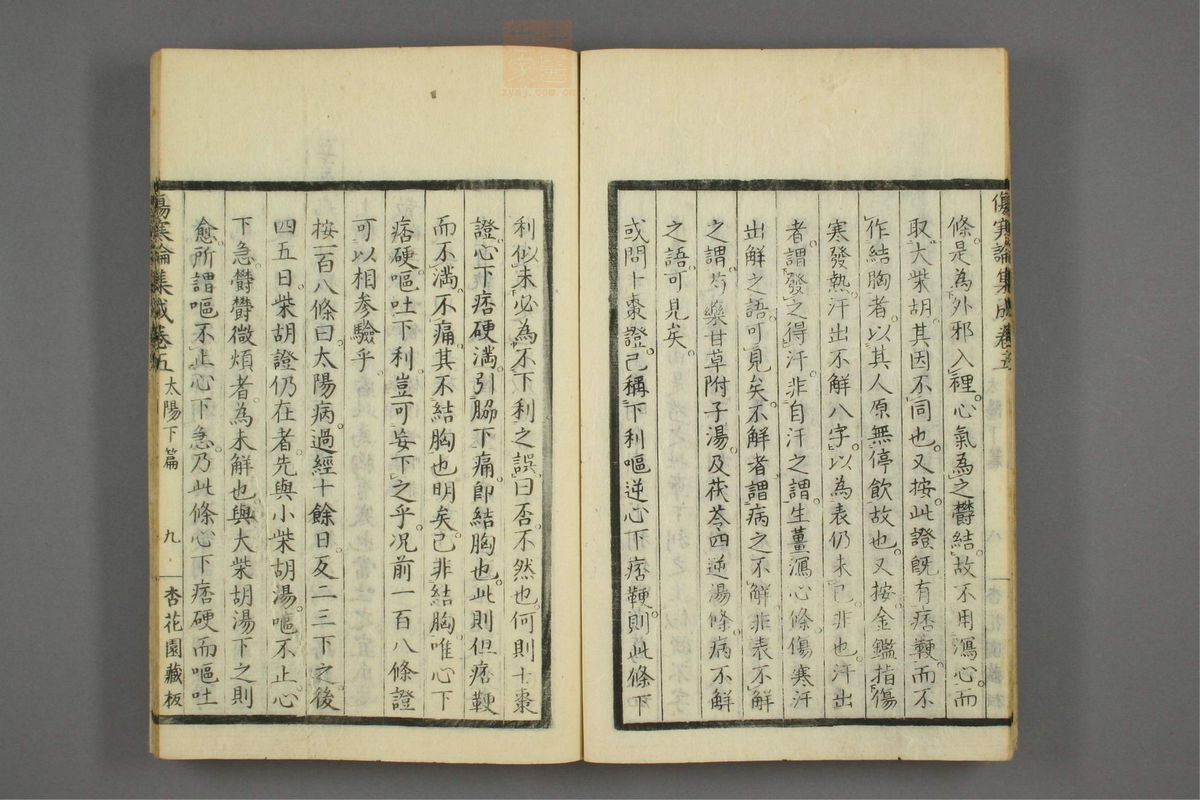 傷寒論集成卷五
條是為外邪入裡心氣為之鬱結故不用瀉心而
取大柴胡其因不同也又按此證既有痞鞕而不
作結胸者以其人原無停飲故也又按金鑑指傷
寒發熱汗出不解八字以為表仍未已非也汗出
者謂發之得汗非自汗之謂生薑瀉心條傷寒汗
出解之語可見矣不解者謂病之不解非表不解
之謂芍藥甘草附子湯及茯苓四逆湯條病不解
之語可見矣
或問十棗證已稱下利嘔逆心下痞鞕則此條下
利似未必為不下利之誤曰否不然也何則十棗
證心下痞硬滿引脇下痛卽結胸也此則但痞鞕
而不滿不痛其不結胸也明矣已非結胸唯心下
痞硬嘔吐下利豈可妄下之乎況前一百八條證
可以相参驗乎
按一百八條曰太陽病過經十餘日反二三下之後
四五日柴胡證仍在者先與小柴胡湯嘔不止心
下急鬱鬱微煩者為未解也與大柴胡湯下之則
愈所謂嘔不止心下急乃此條心下痞硬而嘔吐
傷寒論集成卷五 太陽下篇 九 杏花園藏板